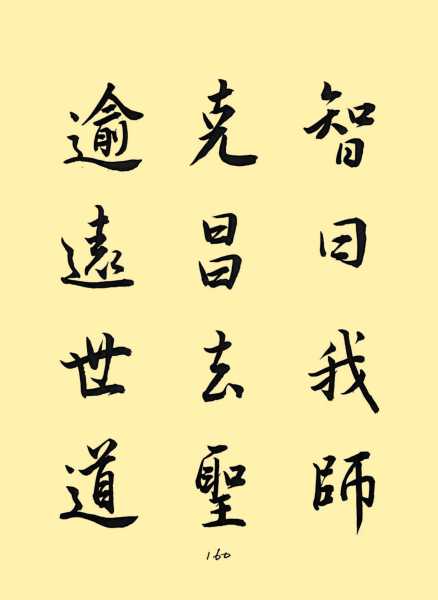 智曰我師
克昌去聖
逾遠世道
160